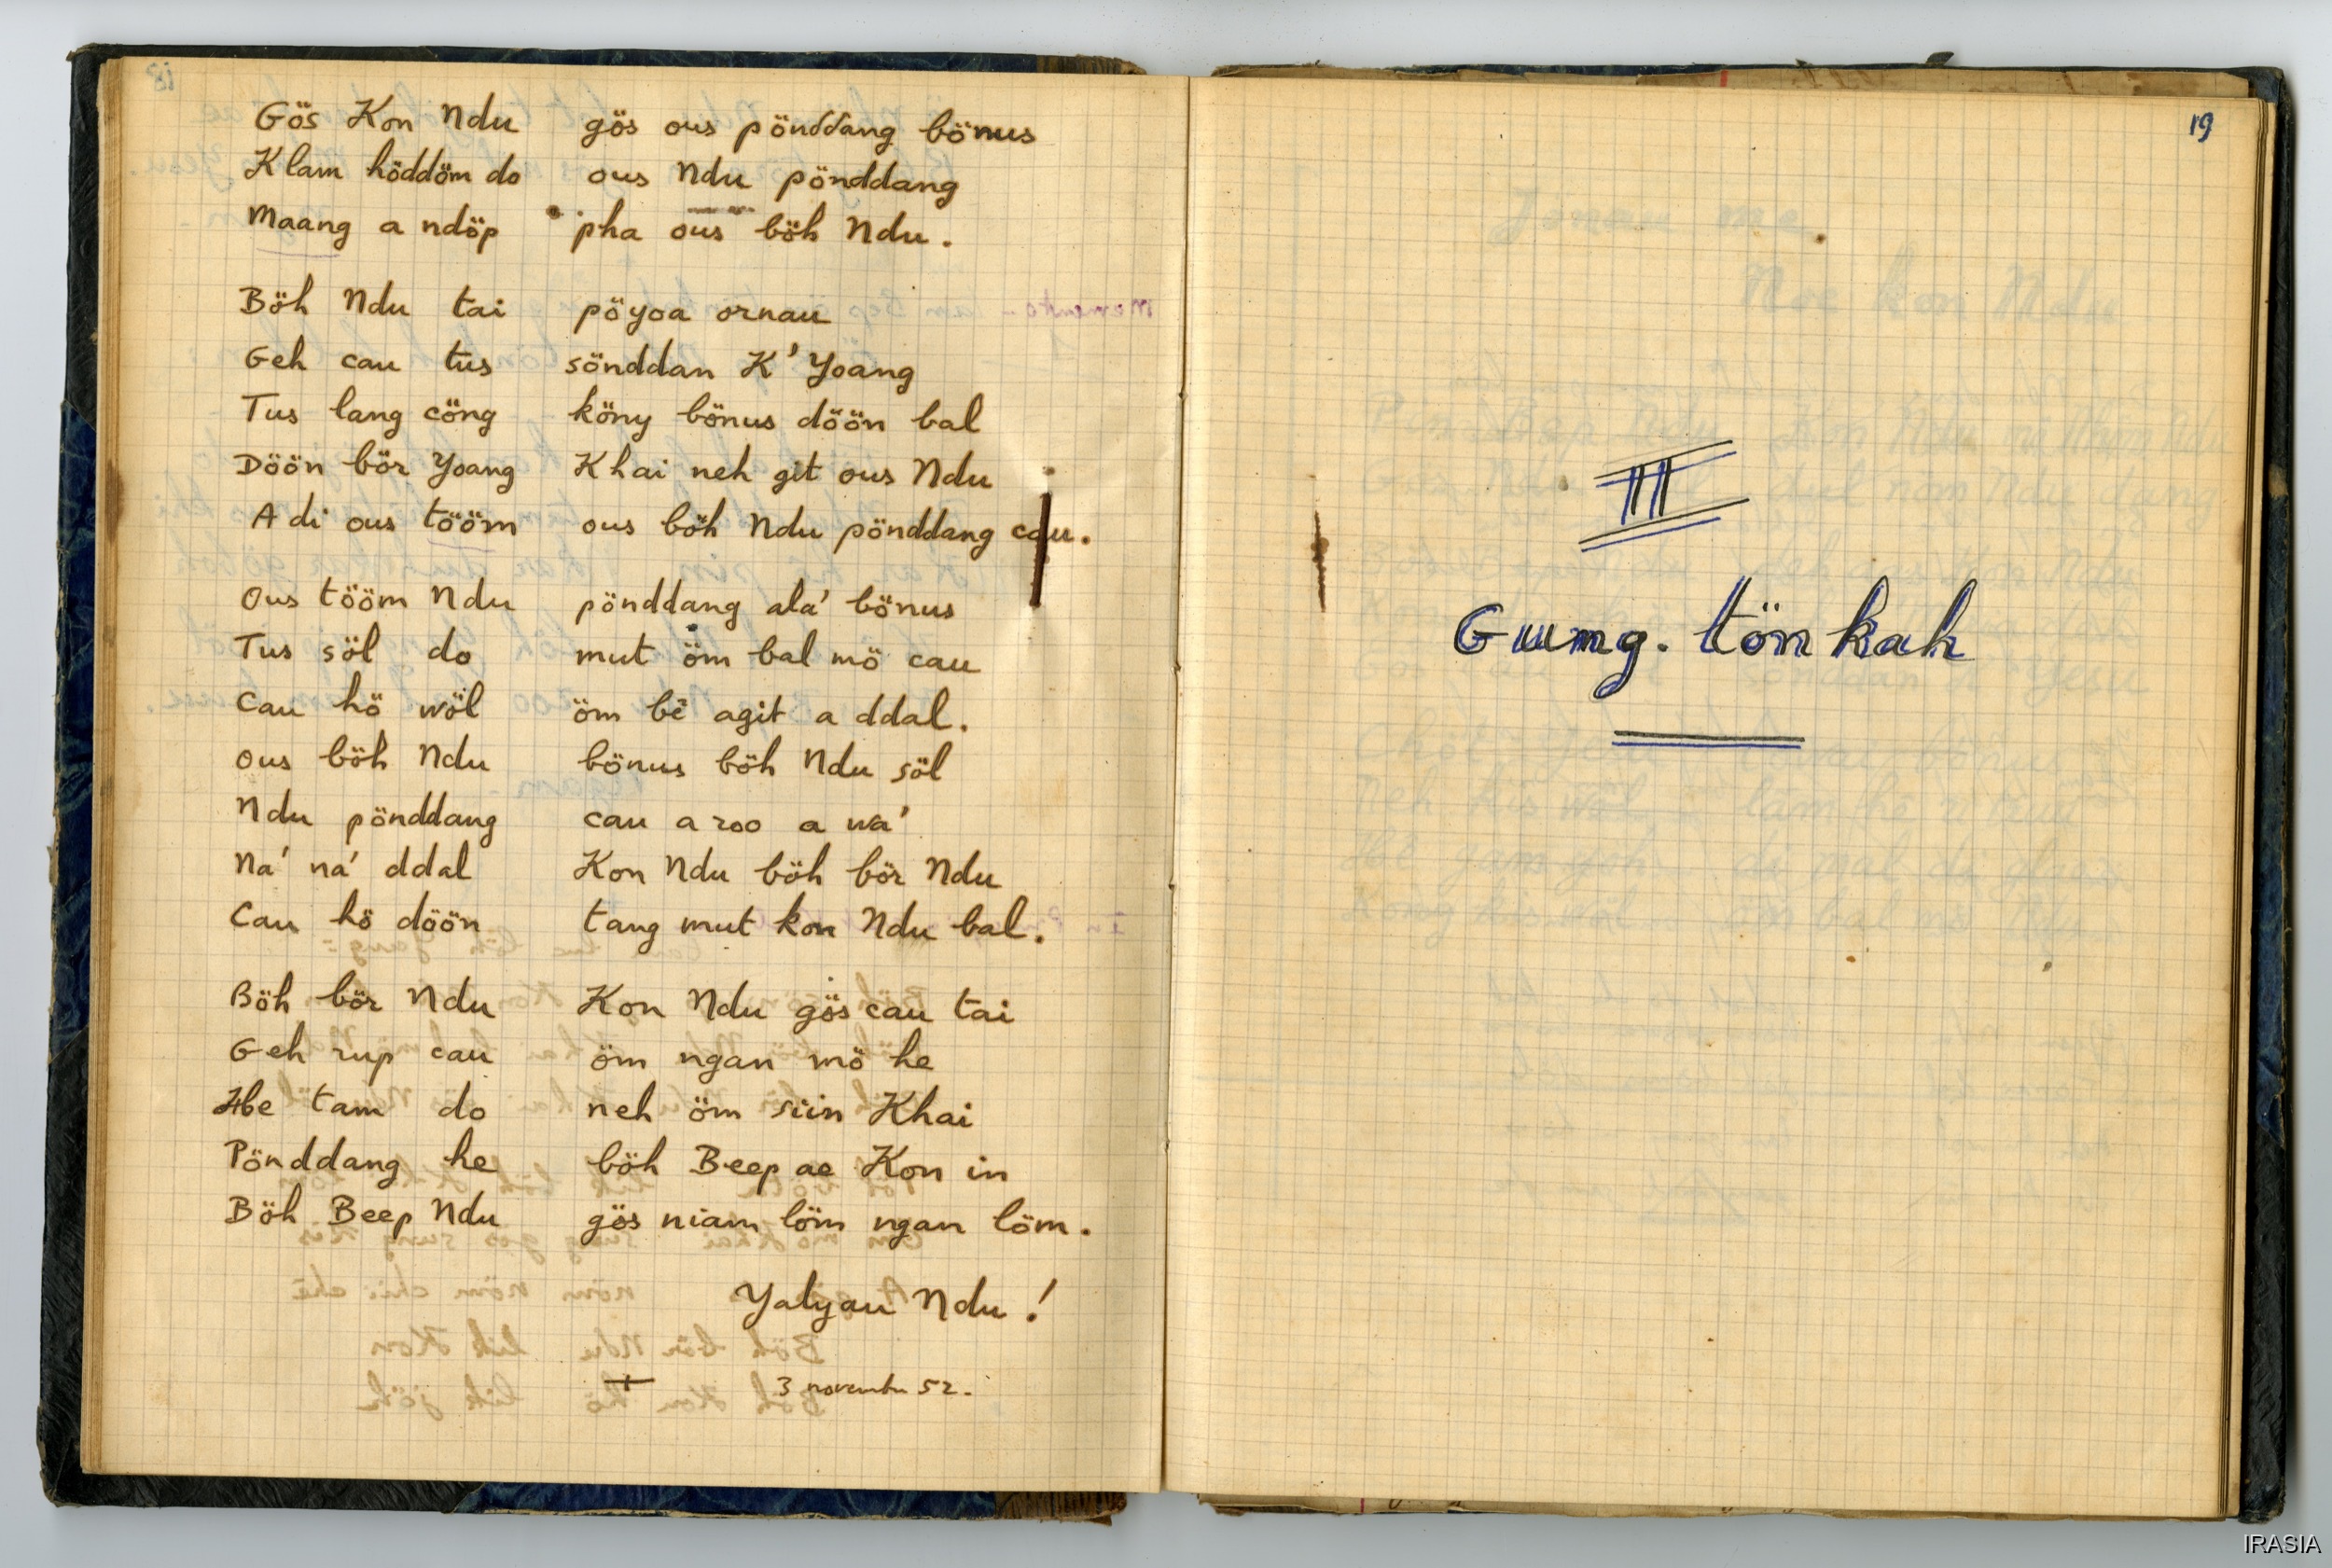 Gös Kon Ndu gös ous pönddang bönus
Klam höddöm do ous Ndu pönddang
Maang a ndöp pha ous böh Ndu.
Böh Ndu tai pöyoa ornau
Geh cau tus sönddan K'Yoang
Tus lang cöng köny bönus döön bal
Döön bör Yoang Khai neh git ous Ndu
A di ous tööm ous böh Ndu pönddang cau.
Ous tööm Ndu pönddang ala' bönus
Tus söl do mut öm bal mö cau
Cau hö wöl öm bê agit a ddal.
Ous böh Ndu bönus böh Ndu söl
Ndu pönddang cau a roo a wa'
Na' na' ddal Kon Ndu böh bör Ndu
Cau hö döön tang mut kon Ndu bal.
Böh bör Ndu Kon Ndu gös cau tai
Geh rup cau öm ngan mö he
Hbe tam do neh öm siin Khai
Pönddang he böh Beep ae Kon in
Böh Beep Ndu gös niam löm ngan löm.
Yalyau Ndu !
3 novembre 52.
19
III
Gumg. tönkah
IRASIA